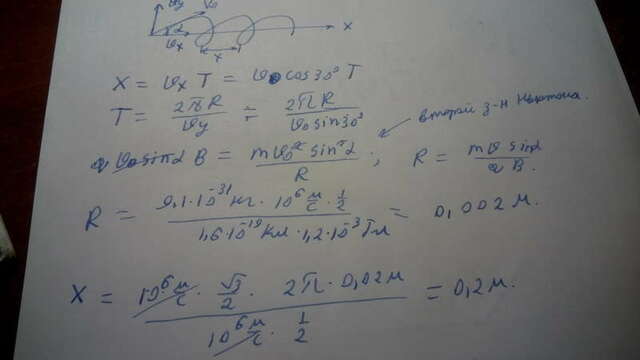 υy υ₀
α
υx
x
x
X = υx T = υ₀ cos30° T
T = 2πR/υy = 2πR/υ₀ sin30°
второй з-н Ньютона.
q υ₀ sinα B = mυ₀² sin²α/R ; R = mυ sinα/q B.
R = 9,1·10⁻³¹ кг · 10⁶ м/с · 1/2 / 1,6·10⁻¹⁹ Кл · 1,2·10⁻³ Тл = 0,002 м.
X = 10⁶ м/с · √3/2 · 2π · 0,02 м / 10⁶ м/с · 1/2 = 0,2 м.